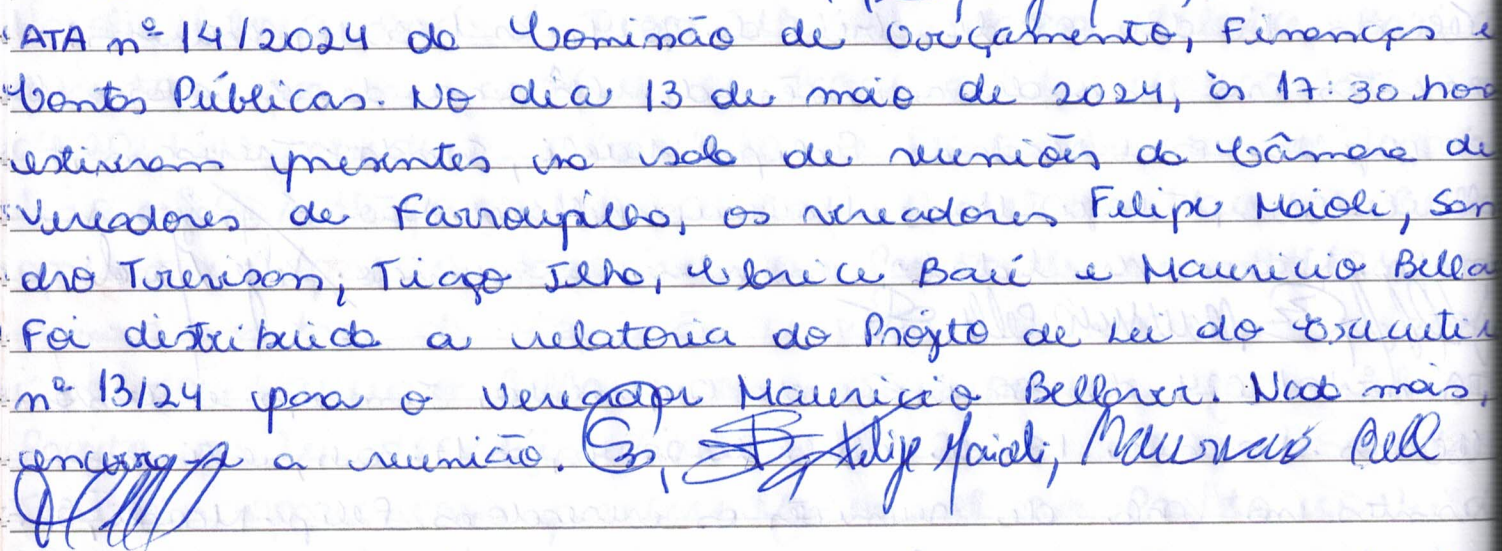 ATA nº 14/2024 da Comissão de Orçamento, Finanças e
Contas Públicas. No dia 13 de maio de 2024, às 17:30 hora
estiveram presentes na sala de reuniões da Câmara de
Vereadores de Farroupilha, os vereadores Felipe Maioli, San
dro Trevisan, Tiago Ilha, Clarice Baú e Maurício Bella
Foi distribuída a relatoria do Projeto de Lei do Executiv
nº 13/24 para o vereador Maurício Bellaver. Nada mais,
encerra-se a reunião. Felipe Maioli, Maurício Bell